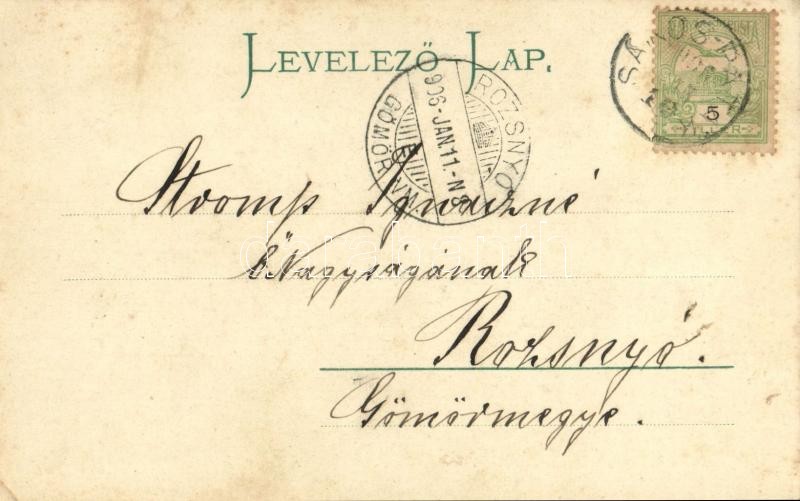 LEVELEZŐ LAP.
ROZSNYÓ
906-JAN.11.-N8
GÖMÖR VM
5
Stromp Ignáczné
Ő Nagyságának
Rozsnyó.
Gömörmegye.